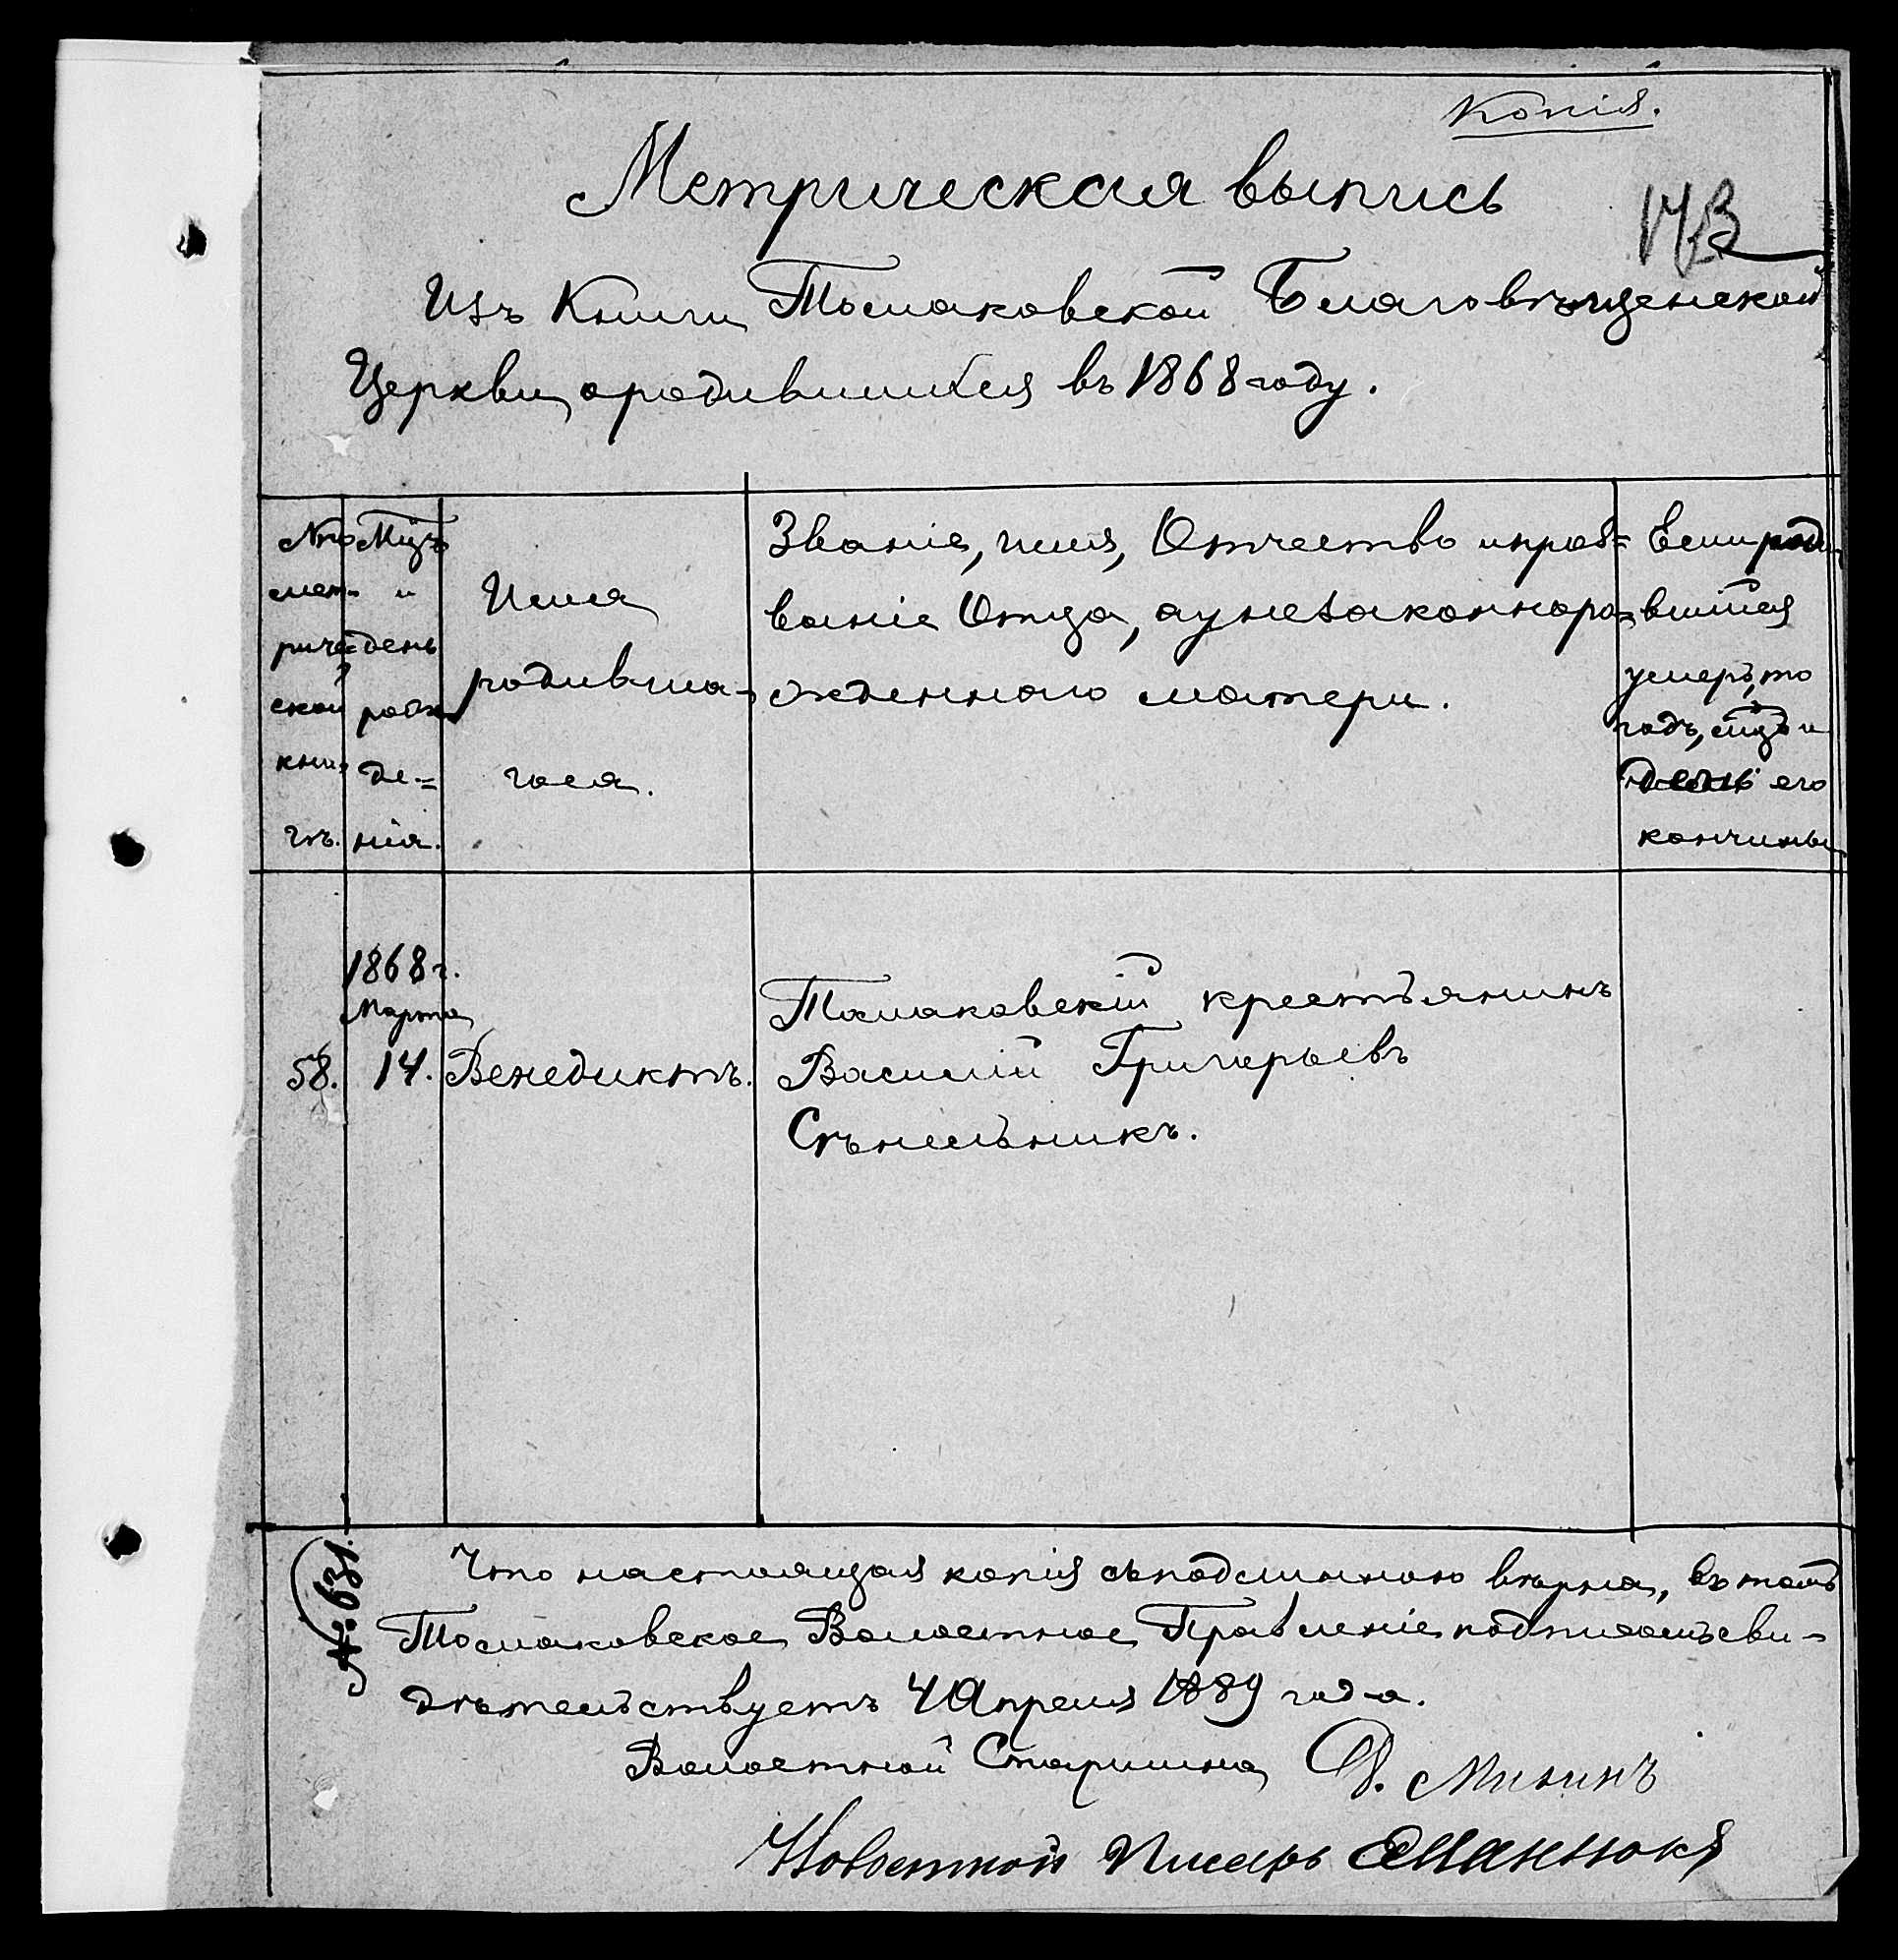 Копія.
Метрическая выпись
173
Изъ Книги Томаковской Благовѣщенской
Церкви, о родившихся въ 1868 году.
№ по метрической книгѣ.
Мцъ и день рожденія.
Имя родившагося.
Званіе, имя, Отчество и проз=
ваніе Отца, а у незаконноро=
жденного матери.
Если роди
вшійся
умеръ, то
годъ, мцъ и
день его
кончины
58.
1868 г.
Марта
14.
Венедиктъ.
Томаковскій крестьянинъ
Василій Григорьевъ
Сѣнельникъ.
№ 631.
Что настоящая копія съ подлинною вѣрна, въ томъ
Томаковское Волостное Правленіе подписомъ сви-
дѣтельствуетъ 4 Апреля 1889 года.
Волостной Старшина Ф. Мининъ
Писарь